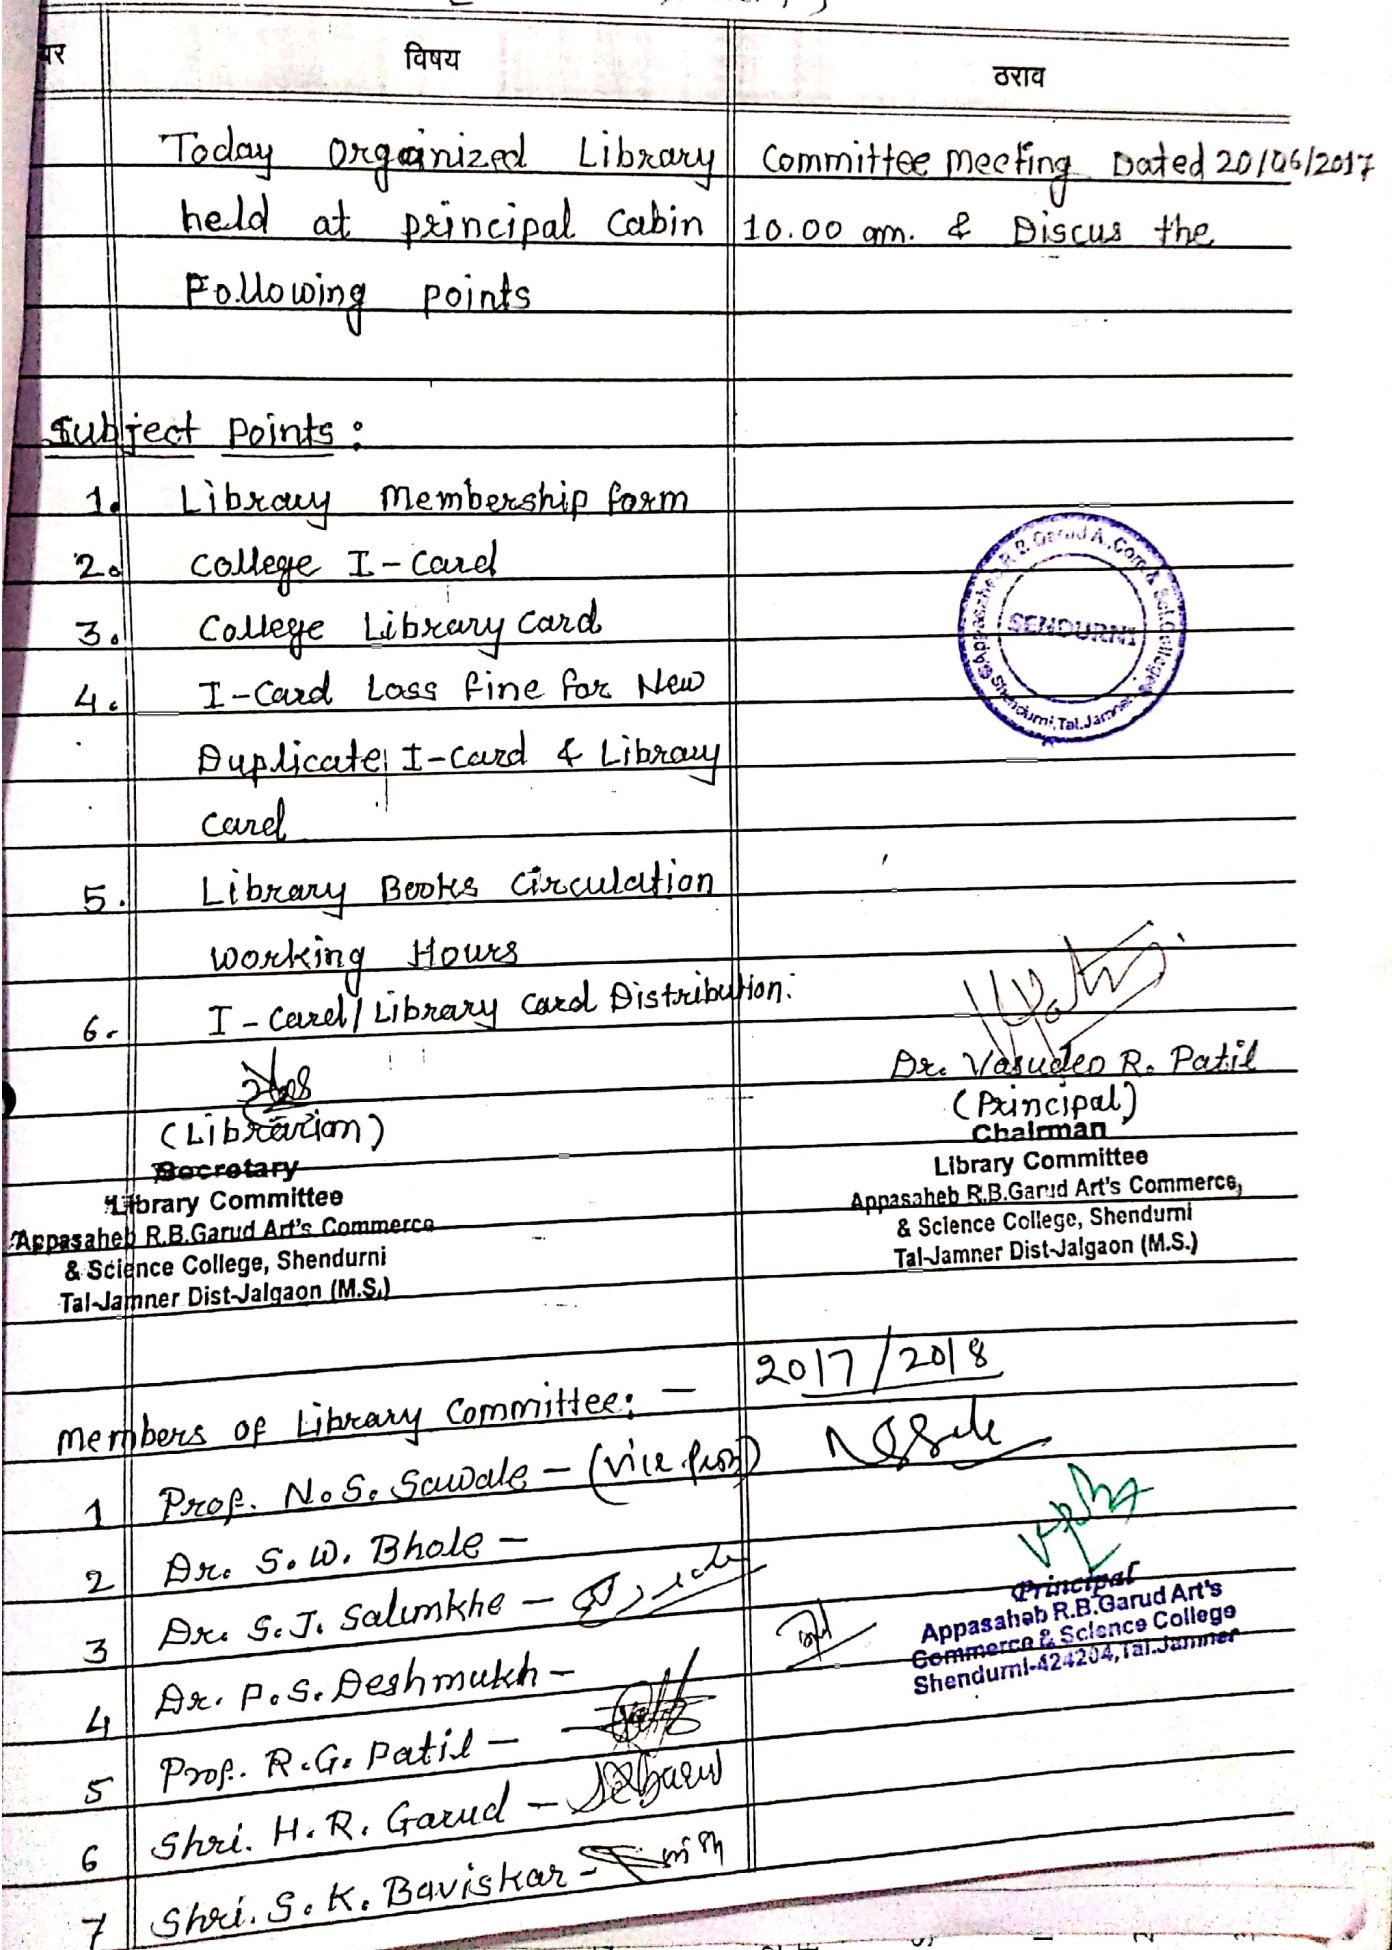 विषय
ठराव
Today Organized Library Committee meeting Dated 20/06/2017
held at principal Cabin 10.00 am. & Discus the
Following points
Subject Points:
1. Library Membership form
2. College I-Card
3. College Library Card
4. I-Card Loss fine for New
Duplicate I-Card & Library
Card
5. Library Books Circulation
Working Hours
6. I-Card/Library Card Distribution.
Appasaheb R.B.Garud A.,Com.& Sci.College
SENDURNI
Shendurni,Tal.Jamner
Dr. Vasudeo R. Patil
(Principal)
Chairman
Library Committee
Appasaheb R.B.Garud Art's Commerce,
& Science College, Shendurni
Tal-Jamner Dist-Jalgaon (M.S.)
(Librarian)
Secretary
Library Committee
Appasaheb R.B.Garud Art's Commerce
& Science College, Shendurni
Tal-Jamner Dist-Jalgaon (M.S.)
Members of Library Committee: - 2017/2018
1 Prof. N.S. Sawale - (Vice Prin)
2 Dr. S.W. Bhole -
3 Dr. S.J. Salunkhe -
4 Dr. P.S. Deshmukh -
5 Prof. R.G. Patil -
6 Shri. H.R. Garud -
7 Shri. S.K. Baviskar -
Principal
Appasaheb R.B.Garud Art's
Commerce & Science College
Shendurni-424204,Tal.Jamner